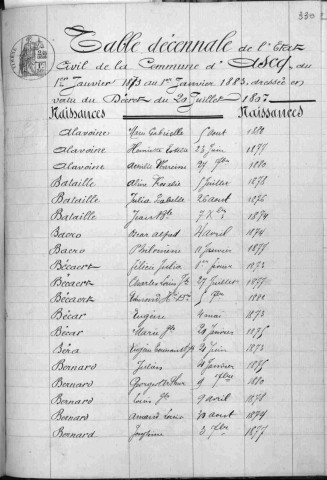 330
Table décennale de l'Etat
Civil de la Commune d'Ascq, du
1er Janvier 1873 au 1er Janvier 1883, dressée en
vertu du Décret du 20 Juillet 1807
Naissances Naissances
Alavoine Marie Gabrielle 5 aout
Alavoine Henriette 23 Juin 1877
Alavoine 27 7bre 1880
Bataille 5 Juillet 1878
Bataille Julia 26 aout 1876
Bataille Jean Bte 7 Xbre 1874
Bacro Oscar Alfred 4 avril 1874
Bacro Philomène 11 Janvier 1877
Bécaert Julia 1er février 1873
Bécaert Charles Louis Jh 27 Juillet 1877
Bécaert Edouard 5
Bécar Eugène 4 mai 1873
Bécar Marie Jh 20 Janvier 1875
Béra 4 Juin 1873
Bernard Julien 4 Janvier 1875
Bernard Georges Arthur 9 1880
Bernard Louis Jh 9 avril 1878
Bernard Amand Louis 30 aout 1874
Bernard 3 7bre 1877